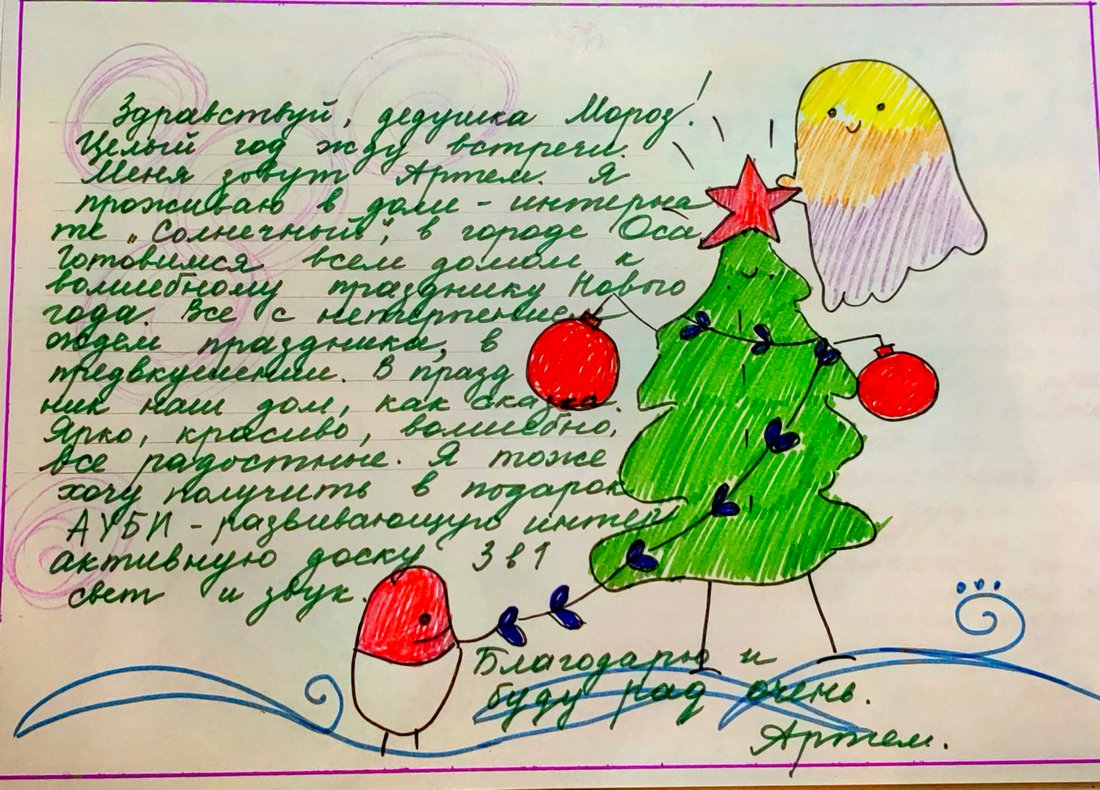 Здравствуй, дедушка Мороз!
Целый год жду встречи.
Меня зовут Артем. Я
проживаю в доме-интерна
те „Солнечный", в городе Оса
Готовимся всем домом к
волшебному празднику Нового
года. Все с нетерпением
ждем праздника, в
предвкушении. В празд
ник наш дом, как сказка.
Ярко, красиво, волшебно,
все радостные. Я тоже
хочу получить в подарок
АУБИ - развивающую интер
активную доску 3 в 1
свет и звук.
Благодарю и
буду рад очень.
Артем.